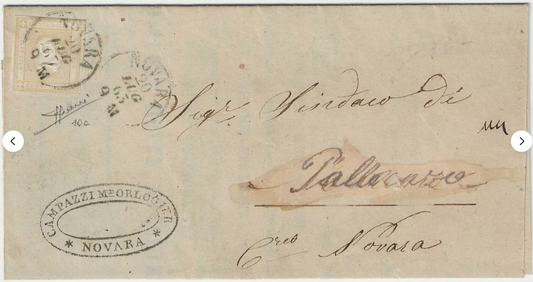 NOVARA
20
LUG
63
9 M
NOVARA
20
LUG
63
9 M
10c
Sigr. Sindaco di
Pallanzeno
Creo Novara
CAMPAZZI Mro OROLOGIER
* NOVARA *